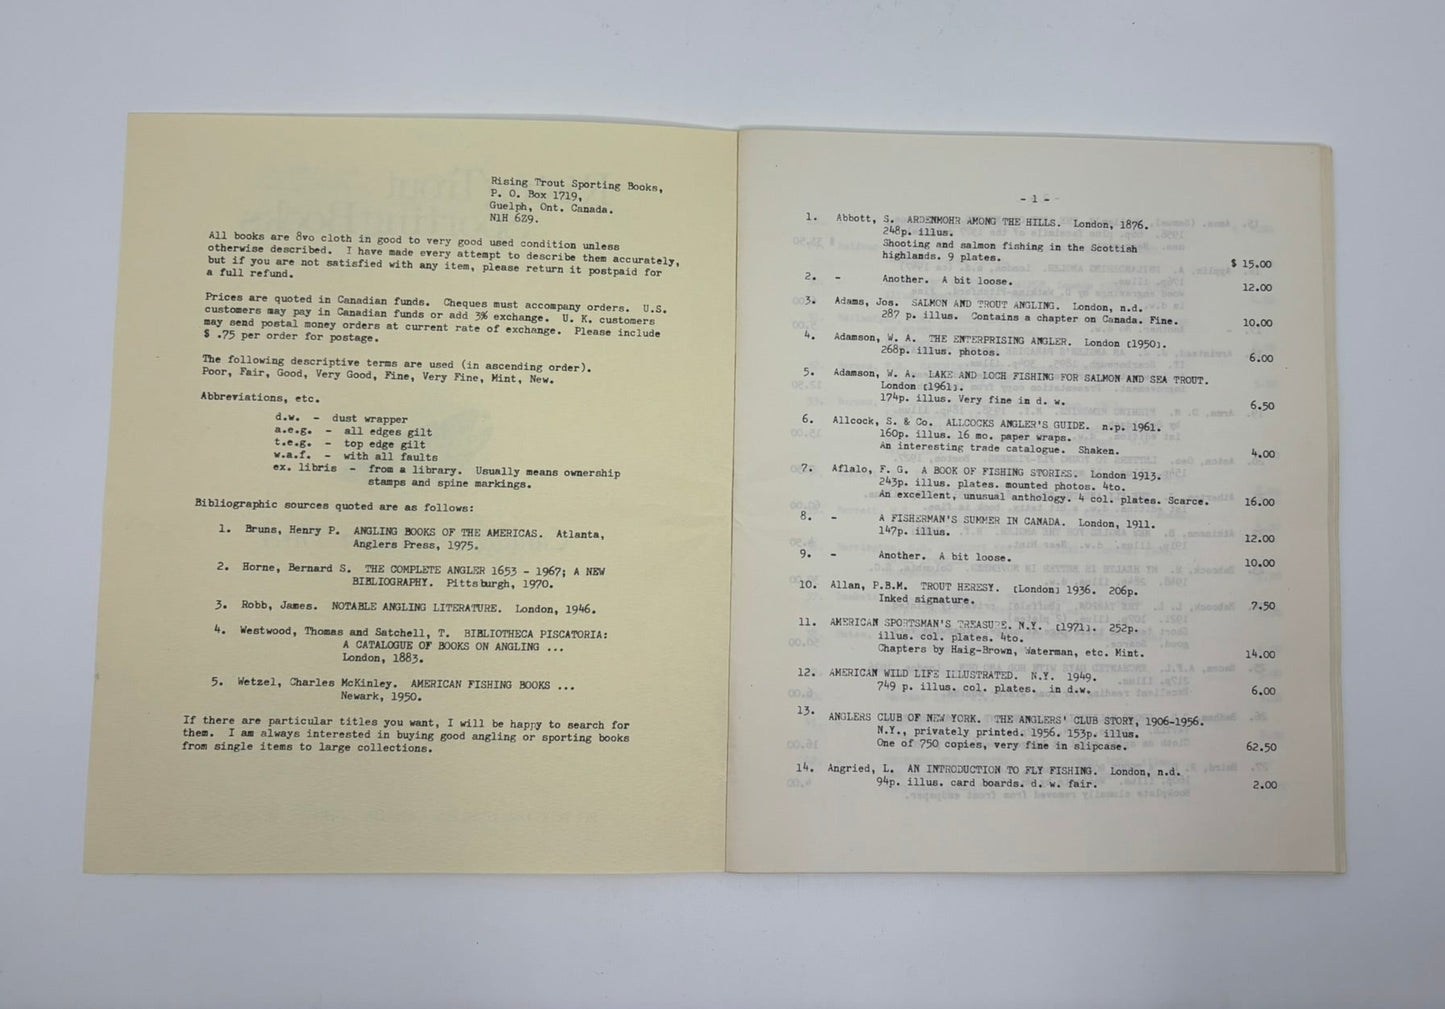 Rising Trout Sporting Books,
P. O. Box 1719,
Guelph, Ont. Canada.
N1H 6Z9.
All books are 8vo cloth in good to very good used condition unless
otherwise described. I have made every attempt to describe them accurately,
but if you are not satisfied with any item, please return it postpaid for
a full refund.
Prices are quoted in Canadian funds. Cheques must accompany orders. U.S.
customers may pay in Canadian funds or add 3% exchange. U. K. customers
may send postal money orders at current rate of exchange. Please include
$ .75 per order for postage.
The following descriptive terms are used (in ascending order).
Poor, Fair, Good, Very Good, Fine, Very Fine, Mint, New.
Abbreviations, etc.
d.w. - dust wrapper
a.e.g. - all edges gilt
t.e.g. - top edge gilt
w.a.f. - with all faults
ex. libris - from a library. Usually means ownership
stamps and spine markings.
Bibliographic sources quoted are as follows:
1. Bruns, Henry P. ANGLING BOOKS OF THE AMERICAS. Atlanta,
Anglers Press, 1975.
2. Horne, Bernard S. THE COMPLETE ANGLER 1653 - 1967; A NEW
BIBLIOGRAPHY. Pittsburgh, 1970.
3. Robb, James. NOTABLE ANGLING LITERATURE. London, 1946.
4. Westwood, Thomas and Satchell, T. BIBLIOTHECA PISCATORIA:
A CATALOGUE OF BOOKS ON ANGLING ...
London, 1883.
5. Wetzel, Charles McKinley. AMERICAN FISHING BOOKS ...
Newark, 1950.
If there are particular titles you want, I will be happy to search for
them. I am always interested in buying good angling or sporting books
from single items to large collections.
- 1 -
1. Abbott, S. ARDENMOHR AMONG THE HILLS. London, 1876.
248p. illus.
Shooting and salmon fishing in the Scottish
highlands. 9 plates. $ 15.00
2. - Another. A bit loose. 12.00
3. Adams, Jos. SALMON AND TROUT ANGLING. London, n.d.
287 p. illus. Contains a chapter on Canada. Fine. 10.00
4. Adamson, W. A. THE ENTERPRISING ANGLER. London [1950].
268p. illus. photos. 6.00
5. Adamson, W. A. LAKE AND LOCH FISHING FOR SALMON AND SEA TROUT.
London [1961].
174p. illus. Very fine in d. w. 6.50
6. Allcock, S. & Co. ALLCOCKS ANGLER'S GUIDE. n.p. 1961.
160p. illus. 16 mo. paper wraps.
An interesting trade catalogue. Shaken. 4.00
7. Aflalo, F. G. A BOOK OF FISHING STORIES. London 1913.
243p. illus. plates. mounted photos. 4to.
An excellent, unusual anthology. 4 col. plates. Scarce. 16.00
8. - A FISHERMAN'S SUMMER IN CANADA. London, 1911.
147p. illus. 12.00
9. - Another. A bit loose. 10.00
10. Allan, P.B.M. TROUT HERESY. [London] 1936. 206p.
Inked signature. 7.50
11. AMERICAN SPORTSMAN'S TREASURE. N.Y. [1971]. 252p.
illus. col. plates. 4to.
Chapters by Haig-Brown, Waterman, etc. Mint. 14.00
12. AMERICAN WILD LIFE ILLUSTRATED. N.Y. 1949.
749 p. illus. col. plates. in d.w. 6.00
13. ANGLERS CLUB OF NEW YORK. THE ANGLERS' CLUB STORY, 1906-1956.
N.Y., privately printed. 1956. 153p. illus.
One of 750 copies, very fine in slipcase. 62.50
14. Angried, L. AN INTRODUCTION TO FLY FISHING. London, n.d.
94p. illus. card boards. d. w. fair. 2.00